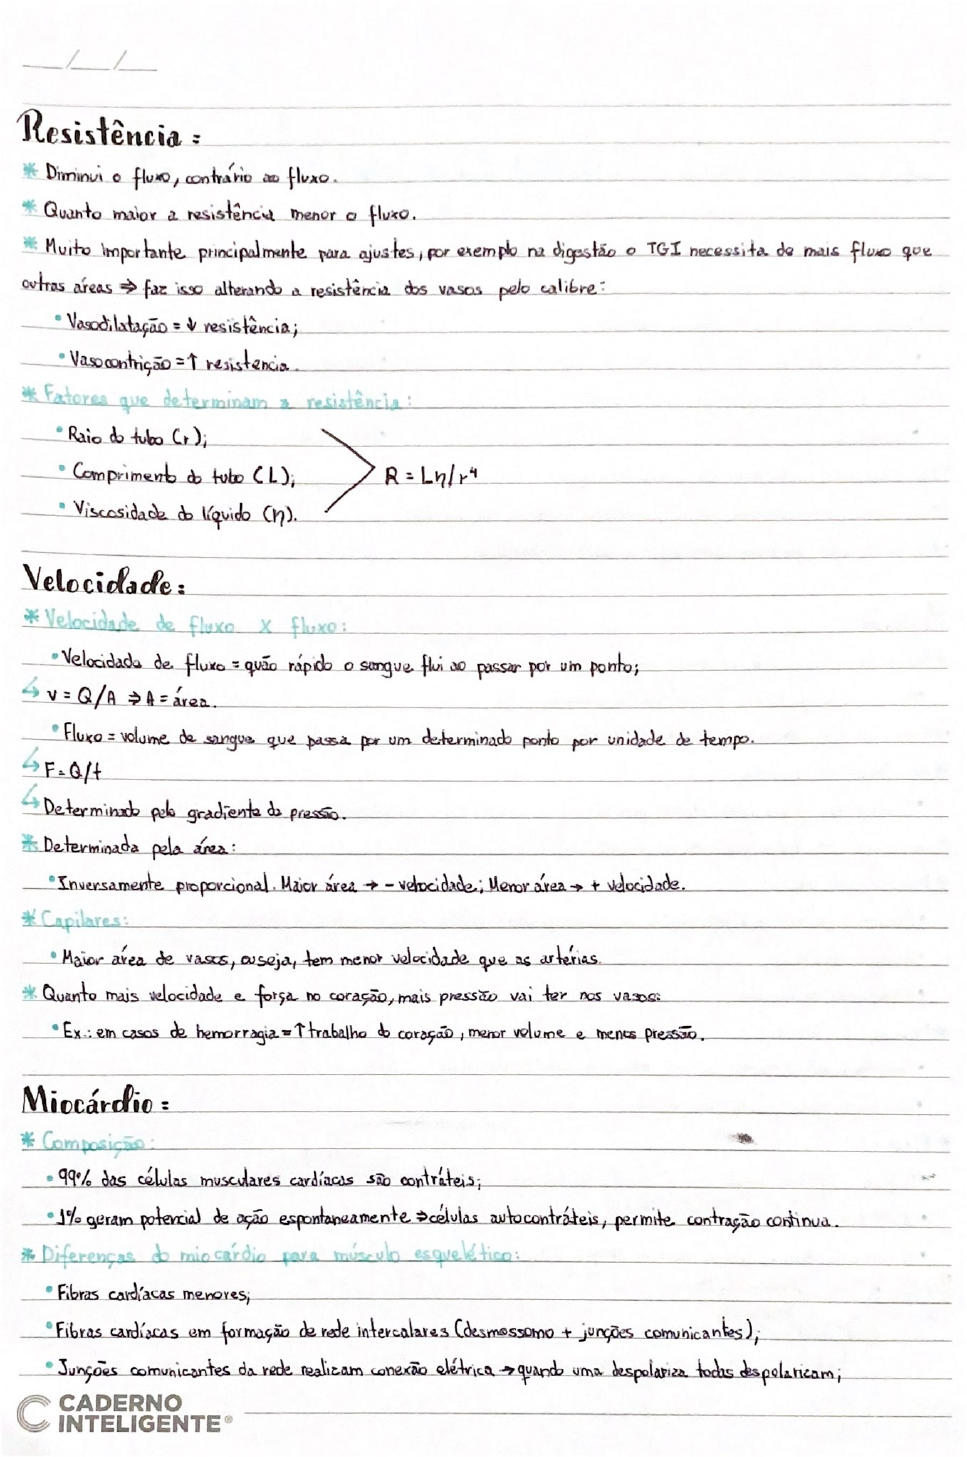 __/__/__
Resistência:
* Diminui o fluxo, contrário ao fluxo.
* Quanto maior a resistência menor o fluxo.
* Muito importante principalmente para ajustes, por exemplo na digestão o TGI necessita de mais fluxo que
outras áreas ⇒ faz isso alterando a resistência dos vasos pelo calibre:
• Vasodilatação = ↓ resistência;
• Vasocontrição = ↑ resistencia.
* Fatores que determinam a resistência:
• Raio do tubo (r);
• Comprimento do tubo (L); R = Lη/r⁴
• Viscosidade do líquido (η).
Velocidade:
* Velocidade de fluxo x fluxo:
• Velocidade de fluxo = quão rápido o sangue flui ao passar por um ponto;
↳ v = Q/A ⇒ A = área.
• Fluxo = volume de sangue que passa por um determinado ponto por unidade de tempo.
↳ F = Q/t
↳ Determinado pelo gradiente de pressão.
* Determinada pela área:
• Inversamente proporcional. Maior área → - velocidade; Menor área → + velocidade.
* Capilares:
• Maior área de vasos, ou seja, tem menor velocidade que as artérias.
* Quanto mais velocidade e força no coração, mais pressão vai ter nos vasos:
• Ex.: em casos de hemorragia = ↑ trabalho do coração, menor volume e menos pressão.
Miocárdio:
* Composição:
• 99% das células musculares cardíacas são contráteis;
• 1% geram potencial de ação espontaneamente ⇒ células autocontráteis, permite contração continua.
* Diferenças do miocárdio para músculo esquelético:
• Fibras cardíacas menores;
• Fibras cardíacas em formação de rede intercalares (desmossomo + junções comunicantes);
• Junções comunicantes da rede realizam conexão elétrica → quando uma despolariza todas despolarizam;
CADERNO
INTELIGENTE®